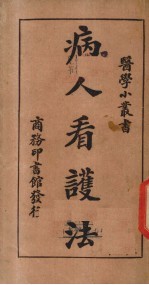 醫學小叢書
病人看護法
商務印書館發行